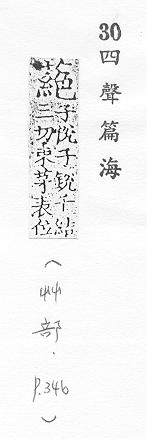 30 四聲篇海
蕝
子悅子銳千結
三切束茅表位
(艸部．p.346)